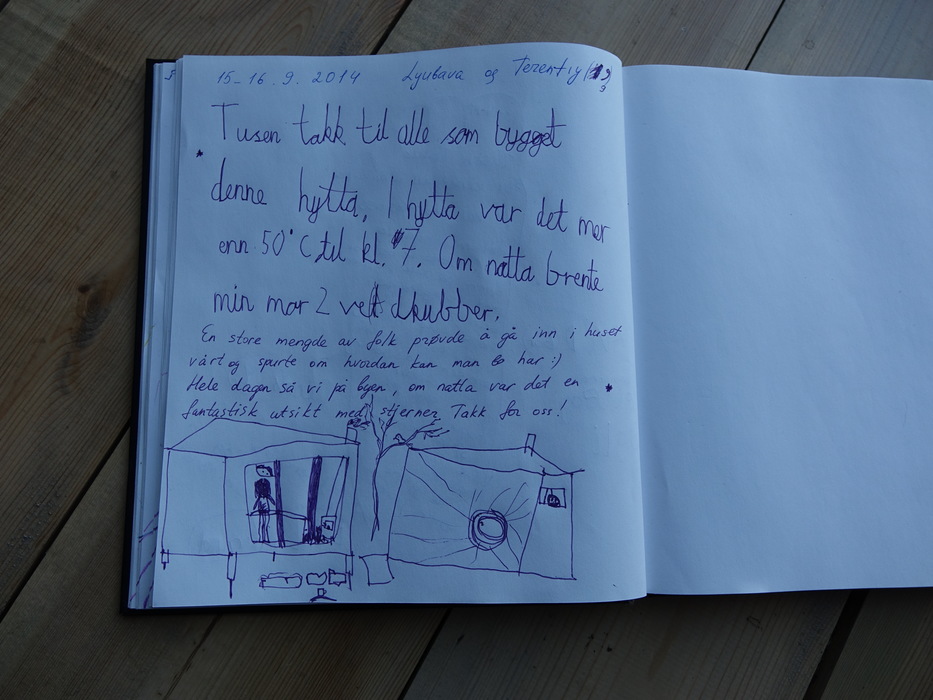 15-16.9.2014 Lyubava og Terentiy
Tusen takk til alle som bygget
denne hytta, I hytta var det mer
enn 50°C til kl. 7. Om natta brente
min mor 2 vedkubber.
En store mengde av folk prøvde å gå inn i huset
vårt og spurte om hvordan kan man bo her :)
Hele dagen så vi på byen, om natta var det en
fantastisk utsikt med stjerner. Takk for oss!